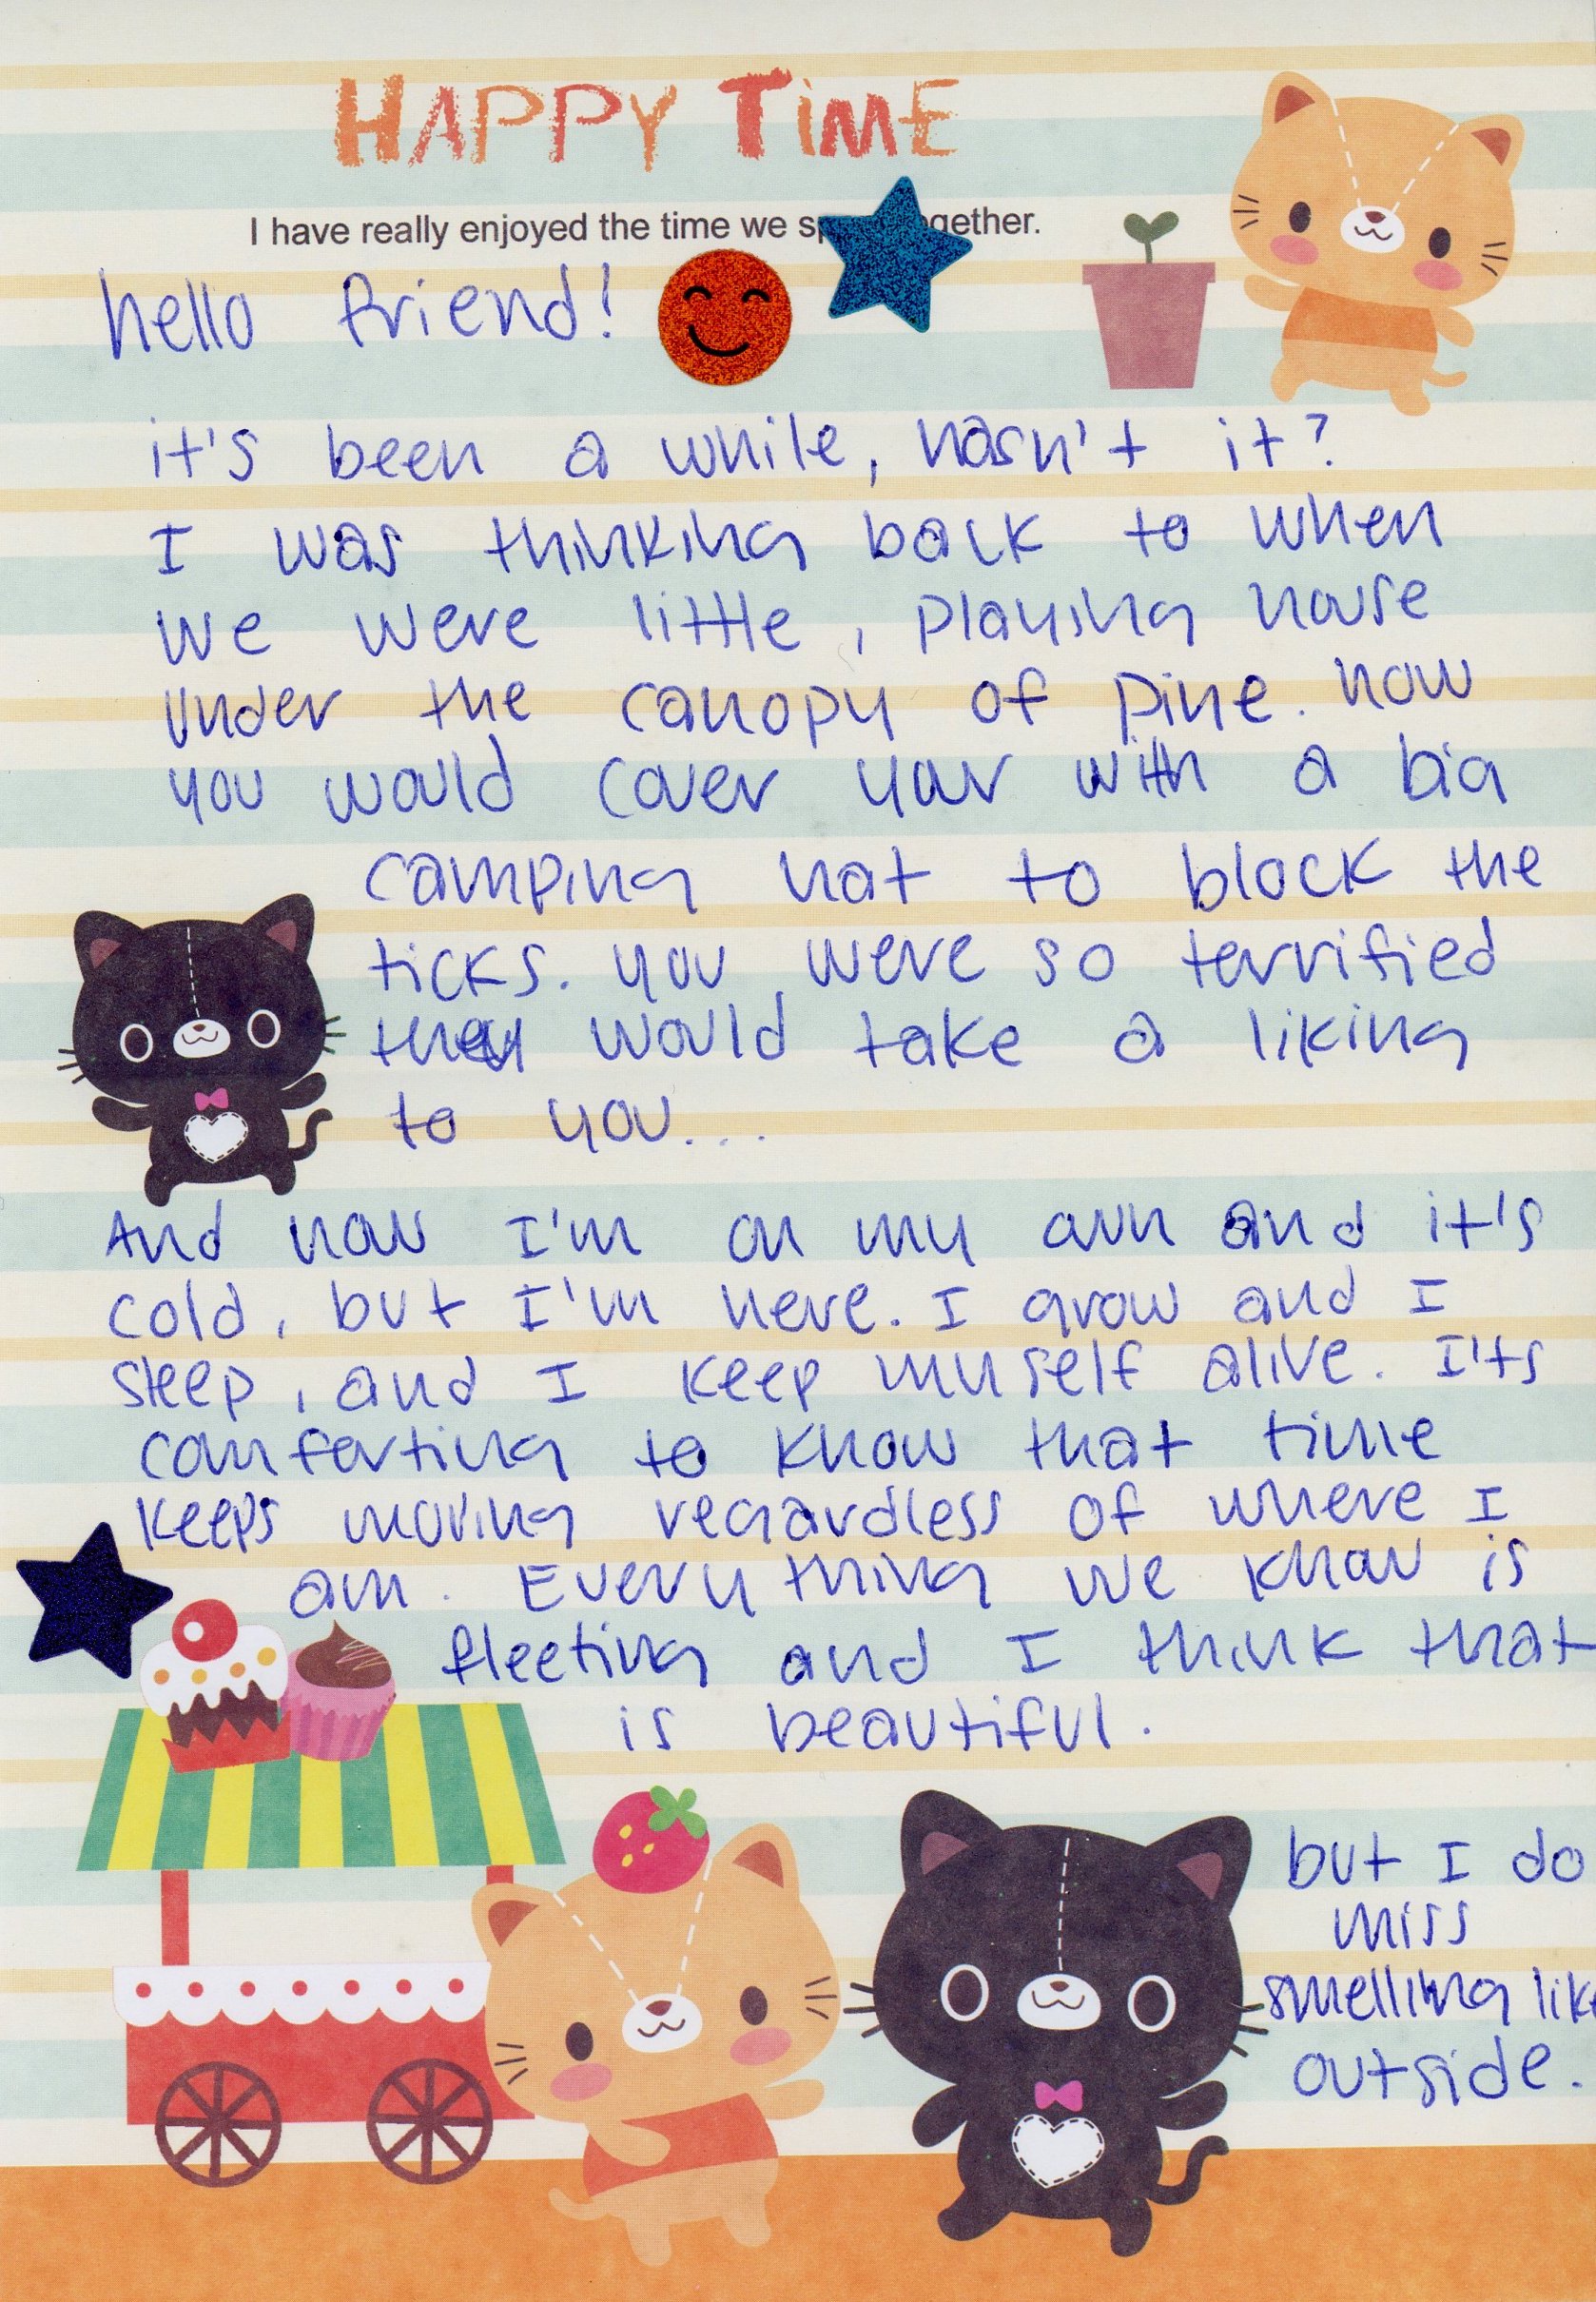 HAPPY TIME
I have really enjoyed the time we together.
hello friend!
it's been a while, hasn't it?
I was thinking back to when
we were little, playing house
under the canopy of pine. how
you would cover your with a big
camping hat to block the
ticks. you were so terrified
they would take a liking
to you...
And now I'm on my own and it's
cold, but I'm here. I grow and I
sleep, and I keep myself alive. I'ts
comforting to know that time
keeps moving regardless of where I
am. Everything we know is
fleeting and I think that
is beautiful.
but I do
miss
smelling like
outside.